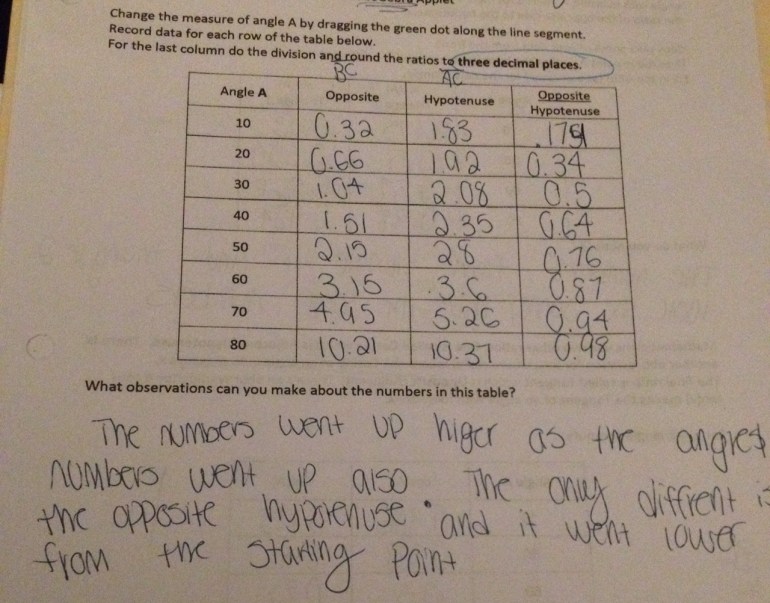 Change the measure of angle A by dragging the green dot along the line segment.
Record data for each row of the table below.
For the last column do the division and round the ratios to three decimal places.
BC AC
Angle A Opposite Hypotenuse Opposite
Hypotenuse
10 0.32 1.83 .1751
20 0.66 1.92 0.34
30 1.04 2.08 0.5
40 1.51 2.35 0.64
50 2.15 28 0.76
60 3.15 .3.6 0.87
70 4.95 5.26 0.94
80 10.21 10.37 0.98
What observations can you make about the numbers in this table?
The numbers went up higer as the angles
numbers went up also The only diffrent is
the opposite hypotenuse. and it went lower
from the starting point